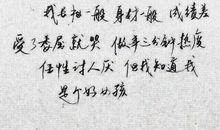 我长相一般 身材一般 成绩差
受了委屈就哭 做事三分钟热度
任性讨人厌 但我知道我
是个好女孩